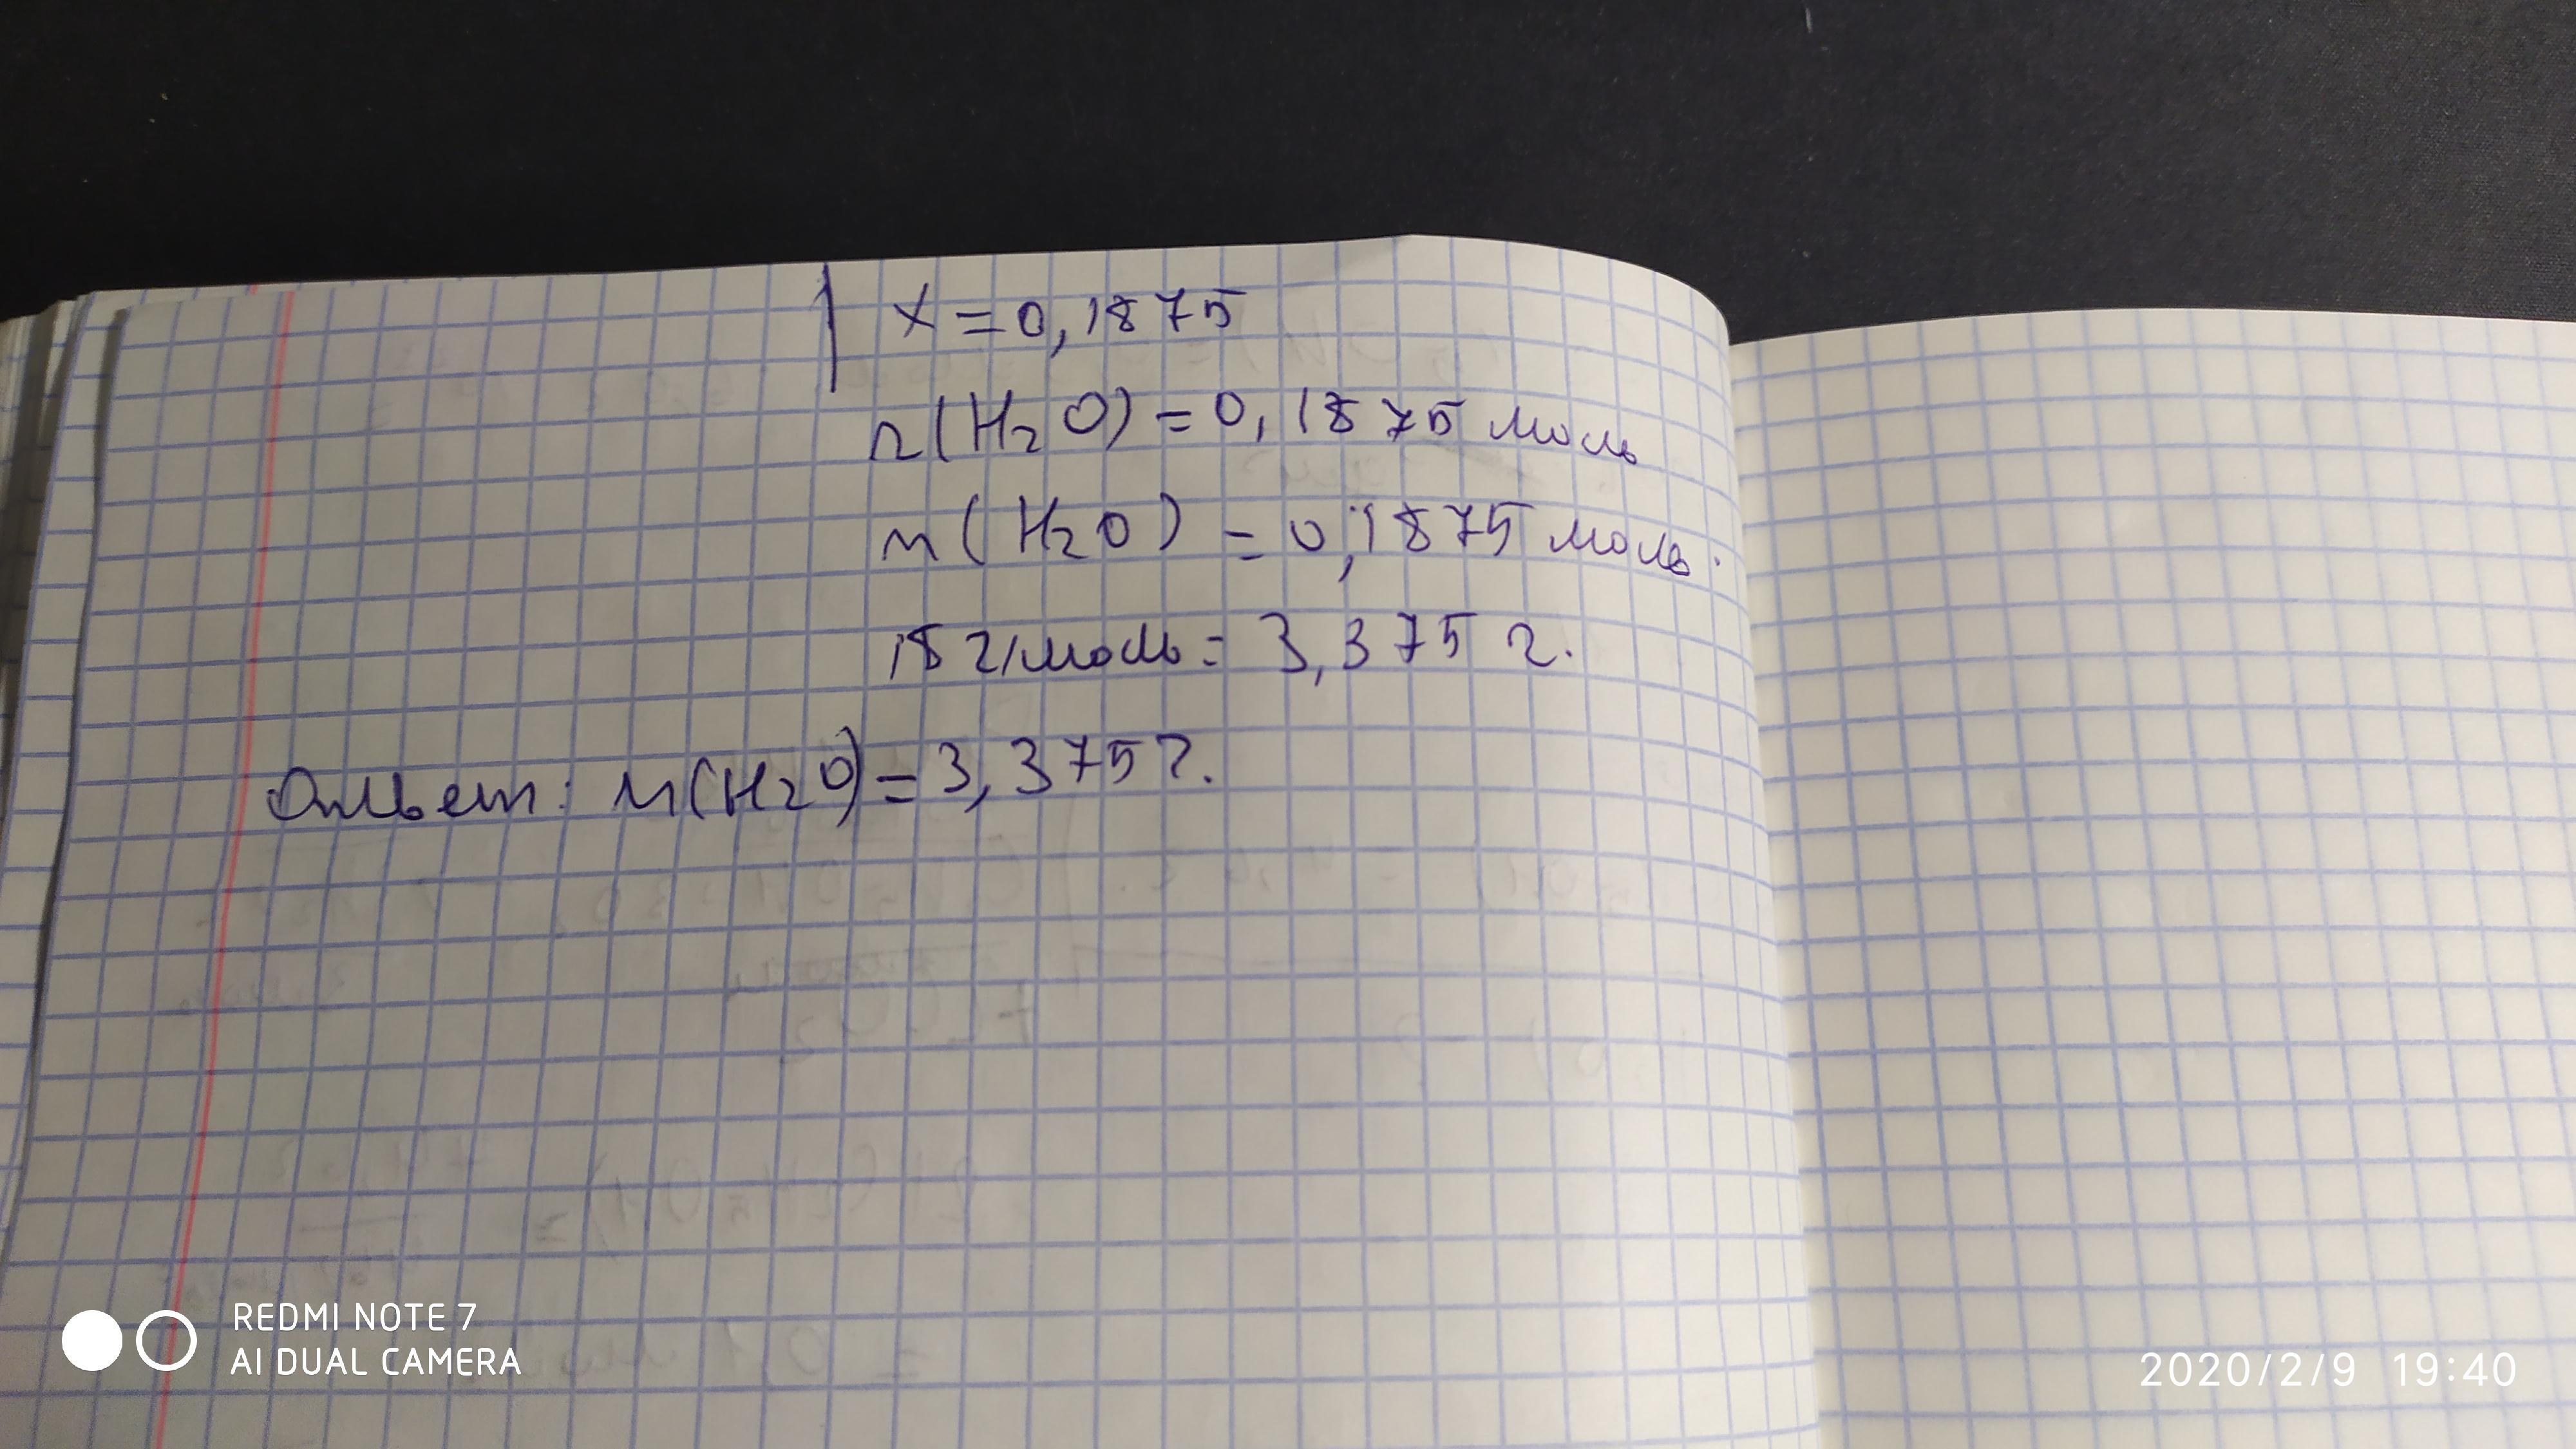 x = 0,1875
n(H₂O) = 0,1875 моль
m(H₂O) = 0,1875 моль ·
18 г/моль = 3,375 г.
Ответ: m(H₂O) = 3,375 г.
REDMI NOTE 7
AI DUAL CAMERA
2020/2/9 19:40